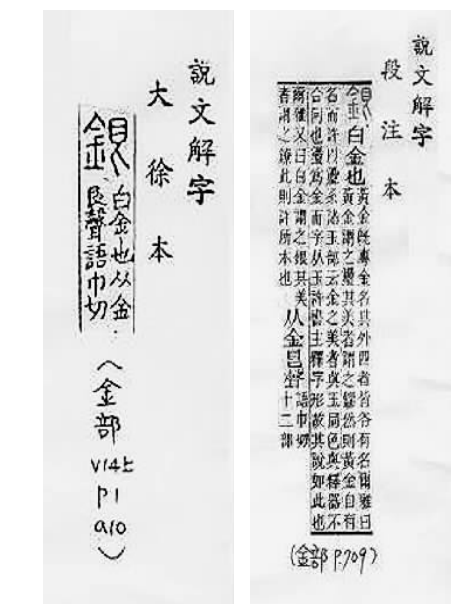 說文解字
大徐本
銀
白金也从金
艮聲語巾切
(金部
V14上
P1
a10)
說文解字
段注本
銀白金也
黃金既專金名其外四者皆各有名爾雅曰
黃金謂之璗其美者謂之鏐然則黃金自有
名而許以璗系諸玉部云金之美者與玉同色與釋器不
合何也璗爲金而字从玉許書主釋字形故其說如此也
爾雅又曰白金謂之銀其美
者謂之鐐此則許所本也
从金艮聲
語巾切
十二部
(金部 P.709)